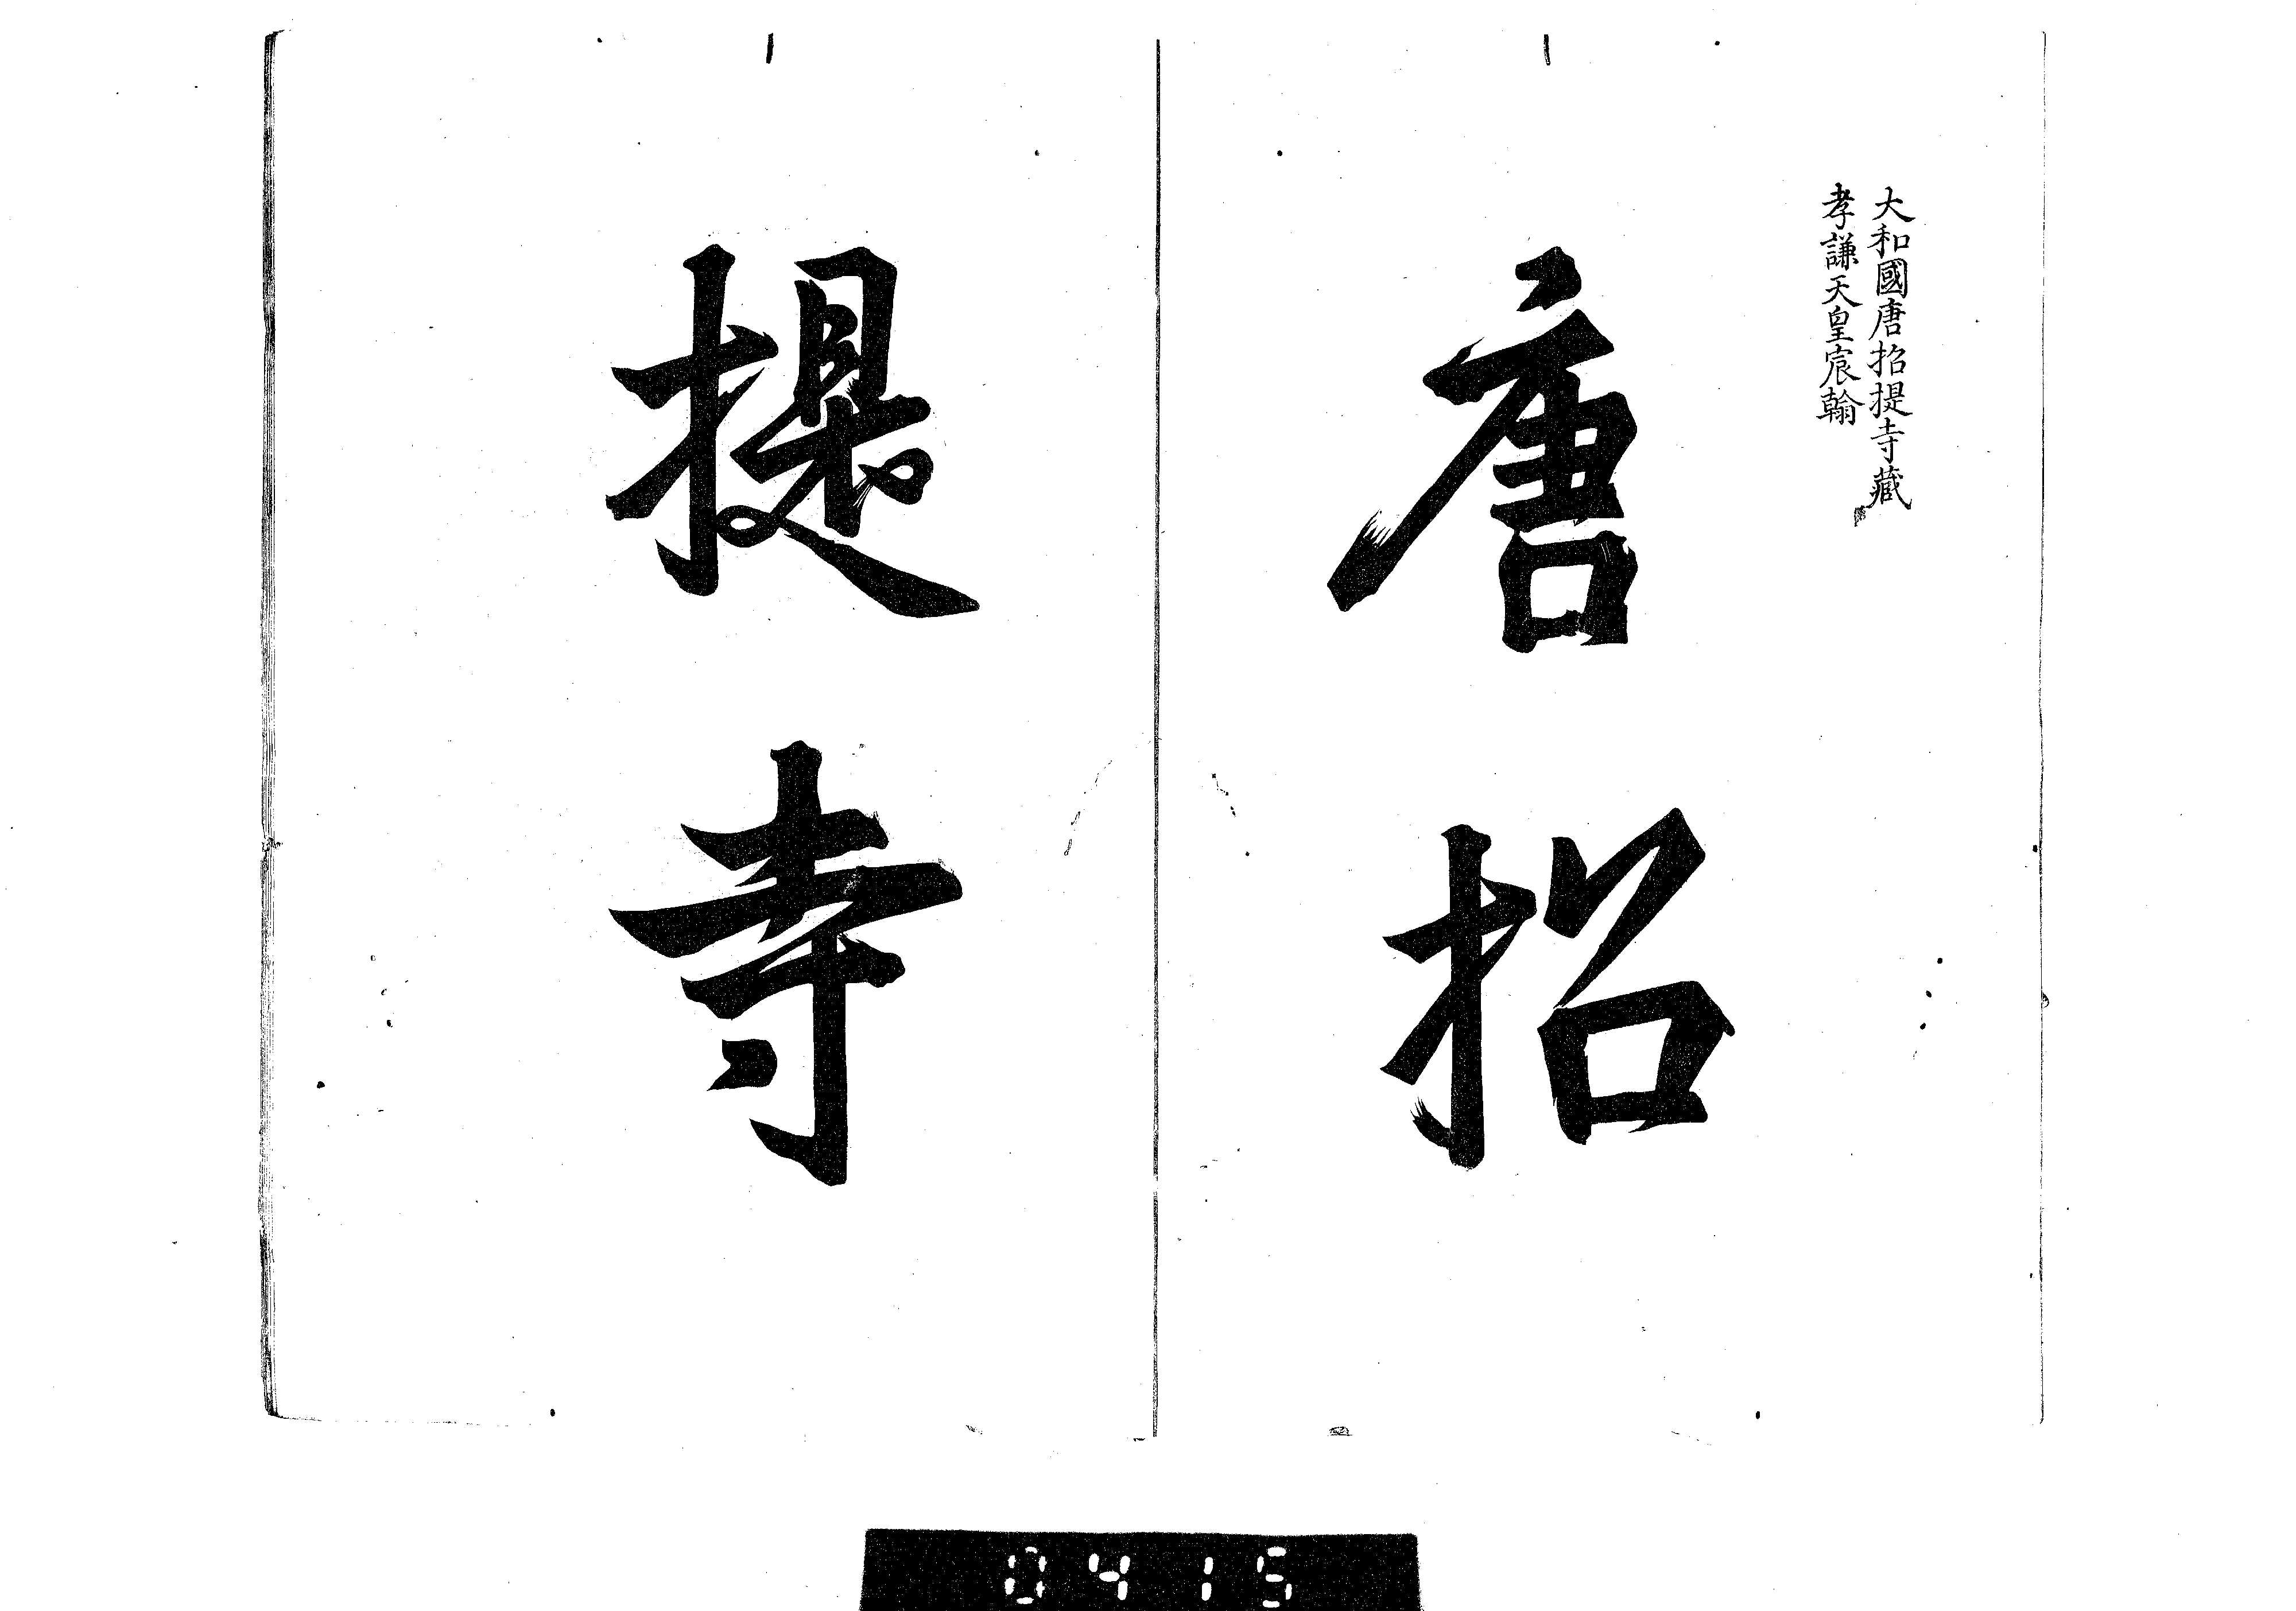 大和國唐招提寺藏
孝謙天皇宸翰
唐招
提寺
0415